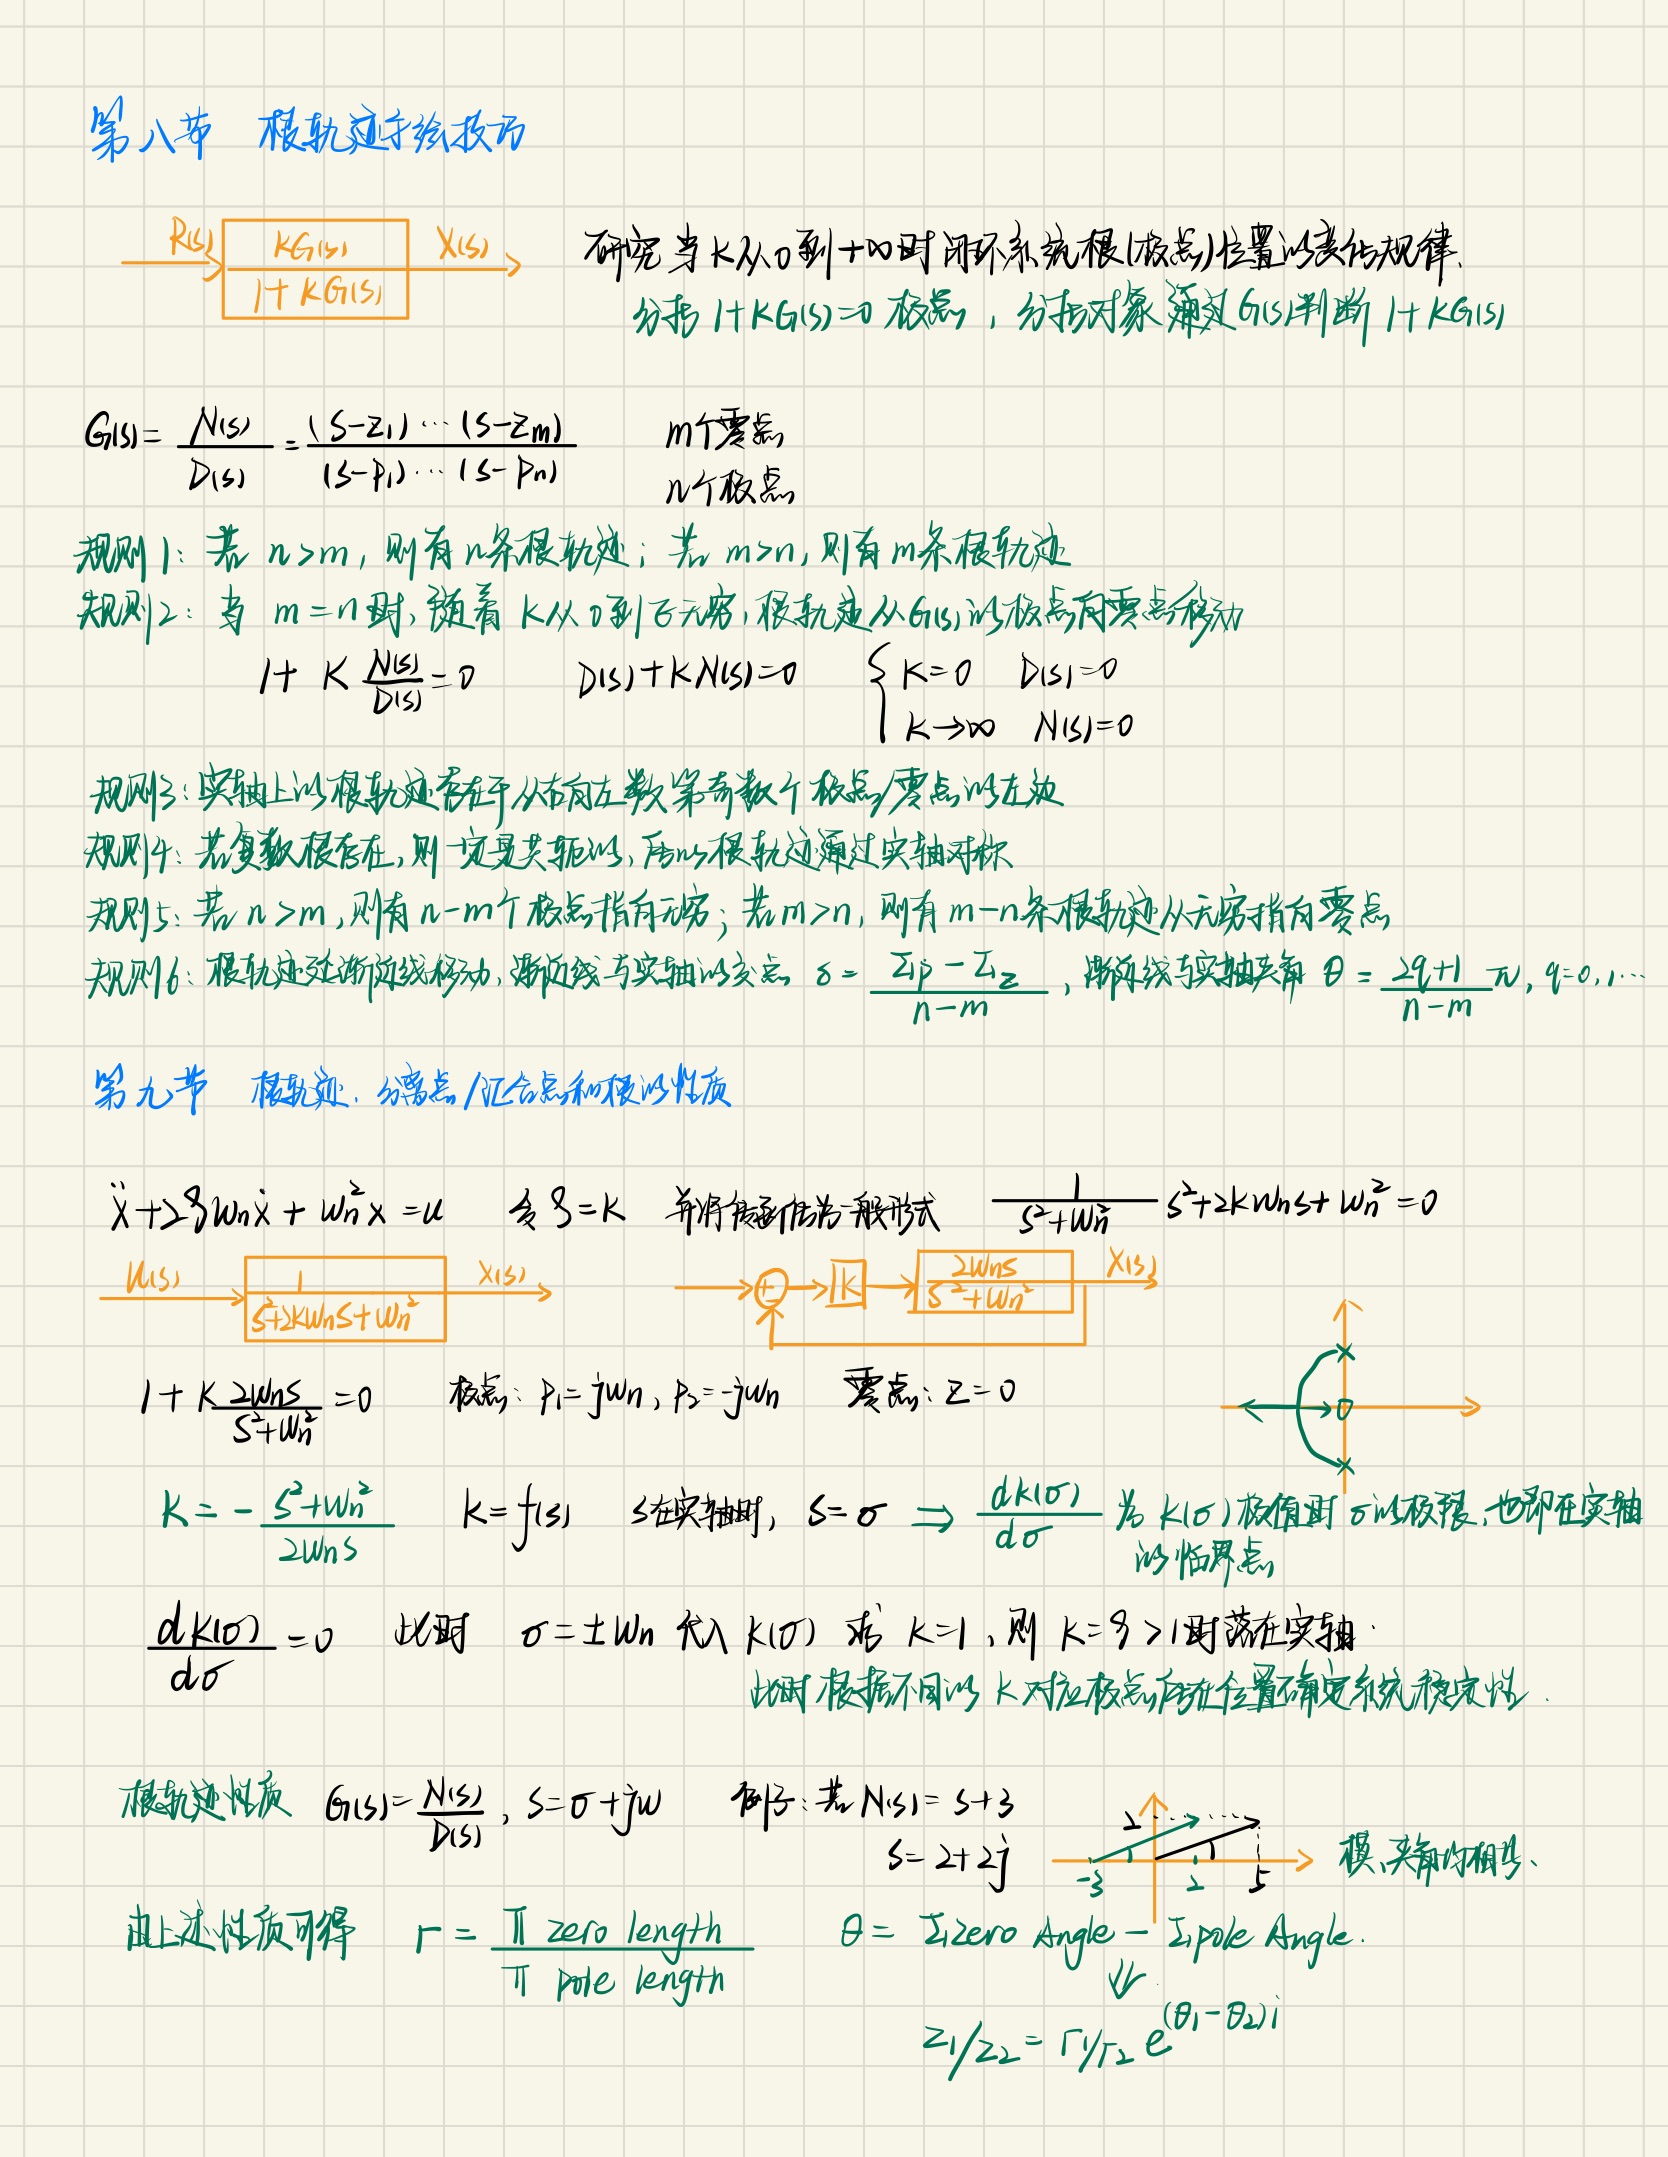 第八节 根轨迹手绘技巧
R(s) KG(s) / 1+KG(s) X(s)
研究当K从0到+∞时闭环系统根(极点)位置的变化规律.
分析 1+KG(s)=0 极点, 分析对象 通过G(s)判断 1+KG(s)
G(s) = N(s)/D(s) = (s-z₁)···(s-zm) / (s-p₁)···(s-pn) m个零点
n个极点
规则1: 若 n>m, 则有n条根轨迹; 若 m>n, 则有m条根轨迹
规则2: 当 m=n时, 随着 K从0到正无穷, 根轨迹从G(s)的极点向零点移动
1+ K N(s)/D(s) =0 D(s)+KN(s)=0 { K=0 D(s)=0
K→∞ N(s)=0
规则3: 实轴上的根轨迹存在于从右向左数第奇数个极点/零点的左边
规则4: 若复数根存在, 则一定是共轭的, 所以根轨迹通过实轴对称
规则5: 若 n>m, 则有 n-m个极点指向无穷; 若m>n, 则有 m-n条根轨迹从无穷指向零点
规则6: 根轨迹延渐近线移动, 渐近线与实轴的交点 σ = (Σp - Σz)/(n-m), 渐近线与实轴夹角 θ = (2q+1)/(n-m) π, q=0,1···
第九节 根轨迹: 分离点/汇合点和根的性质
ẍ+2ζωnẋ+ωn²x=u 令 ζ=K 并将传函化为一般形式 1/(s²+ωn²) s²+2Kωns+ωn²=0
U(s) 1/(s²+2Kωns+ωn²) X(s) + - K 2ωns/(s²+ωn²) X(s)
1+ K 2ωns/(s²+ωn²) =0 极点: p₁=jωn, p₂=-jωn 零点: z=0
K = - (s²+ωn²)/(2ωns) K=f(s) s在实轴时, s=σ ⇒ dK(σ)/dσ 为 K(σ)极值时 σ的极限, 也即在实轴
的临界点
dK(σ)/dσ =0 此时 σ=±ωn 代入 K(σ) 求 K=1, 则 K=ζ>1时落在实轴.
此时根据不同的 K 对应极点所在位置确定系统稳定性.
根轨迹性质 G(s)=N(s)/D(s), s=σ+jω 例子: 若 N(s)=s+3
s=2+2j
2 -3 2 5 模、夹角均相等、
由上述性质可得 r = Π zero length / Π pole length θ = Σ zero Angle - Σ pole Angle.
⇓
z₁/z₂ = r₁/r₂ e^(θ₁-θ₂)i